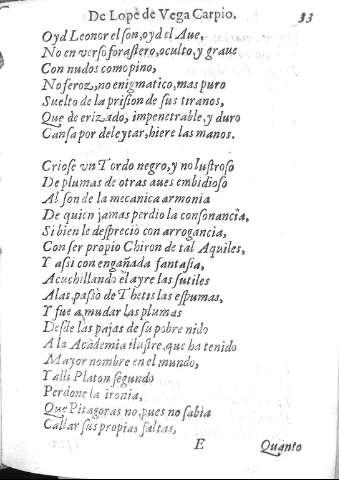 De Lope de Vega Carpio. 33
Oyd Leonor el son, oyd el Aue,
No en verso forastero, oculto, y graue
Con nudos como pino,
No feroz, no enigmatico, mas puro
Suelto de la prision de sus tiranos,
Que de erizado, impenetrable, y duro
Cansa por deleytar, hiere las manos.
Criose vn Tordo negro, y no lustroso
De plumas de otras aues embidioso
Al son de la mecanica armonia
De quien jamas perdio la consonancia,
Si bien le desprecio con arrogancia,
Con ser propio Chiron de tal Aquiles,
Y assi con engañada fantasia,
Acuchillando el ayre las sutiles
Alas, passò de Thetis las espumas,
Y fue a mudar las plumas
Desde las pajas de su pobre nido
A la Academia ilustre, que ha tenido
Mayor nombre en el mundo,
Y alli Platon segundo
Perdone la ironia,
Que Pitagoras no, pues no sabia
Callar sus propias faltas,
E Quanto